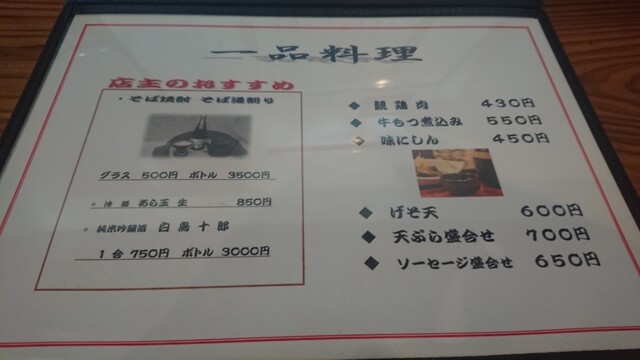 一品料理
店主のおすすめ
・そば焼酎 そば湯割り
グラス 500円 ボトル 3500円
冷酒 あら玉 生 850円
純米吟醸酒 白鳥十郎
1合 750円 ボトル 3000円
◆ 親鶏肉 430円
◆ 牛もつ煮込み 550円
◆ 味にしん 450円
◆ げそ天 600円
◆ 天ぷら盛合せ 700円
◆ ソーセージ盛合せ 650円